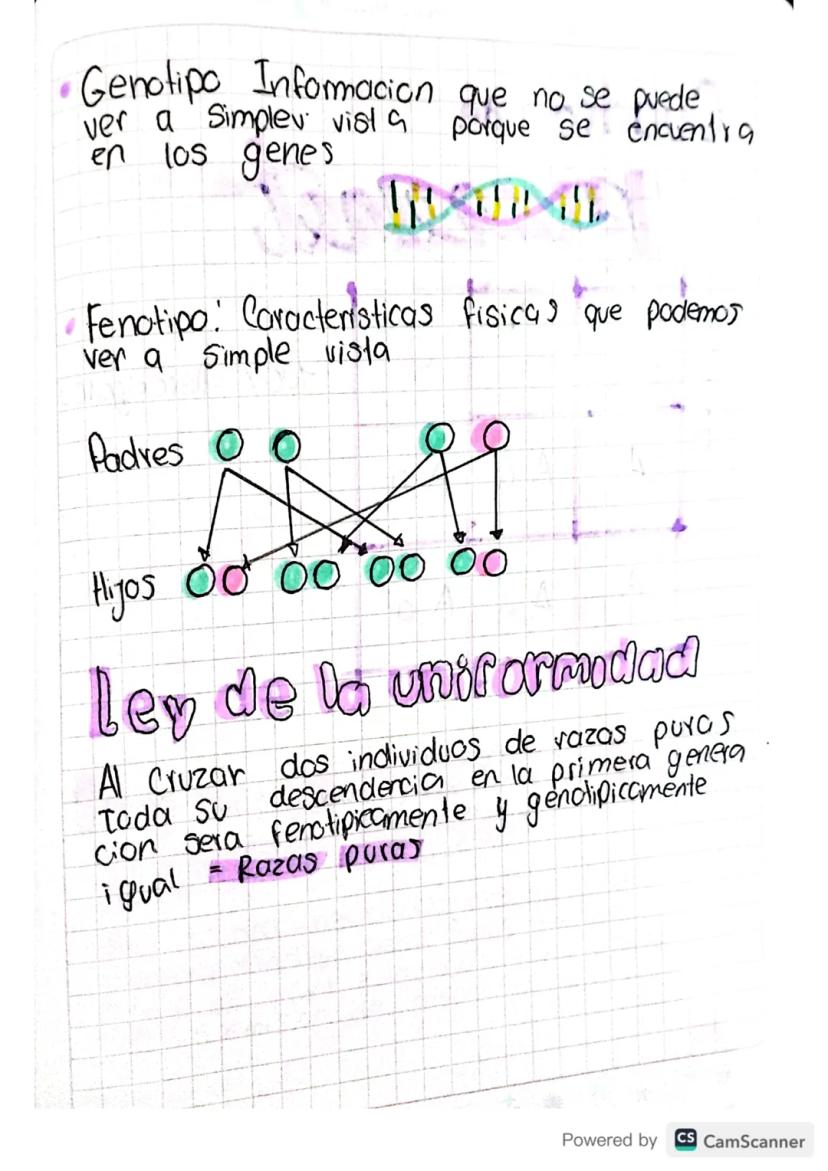 Genotipo Informacion que no se puede
ver a simplev vista porque se encuentra
en los genes
Fenotipo: Caracteristicas fisicas que podemos
ver a simple vista
Padres
Hijos
Ley de la uniformidad
Al cruzar dos individuos de razas puras
toda su descendencia en la primera genera
cion sera fenotipicamente y genotipicamente
igual = Razas puras
Powered by CS CamScanner